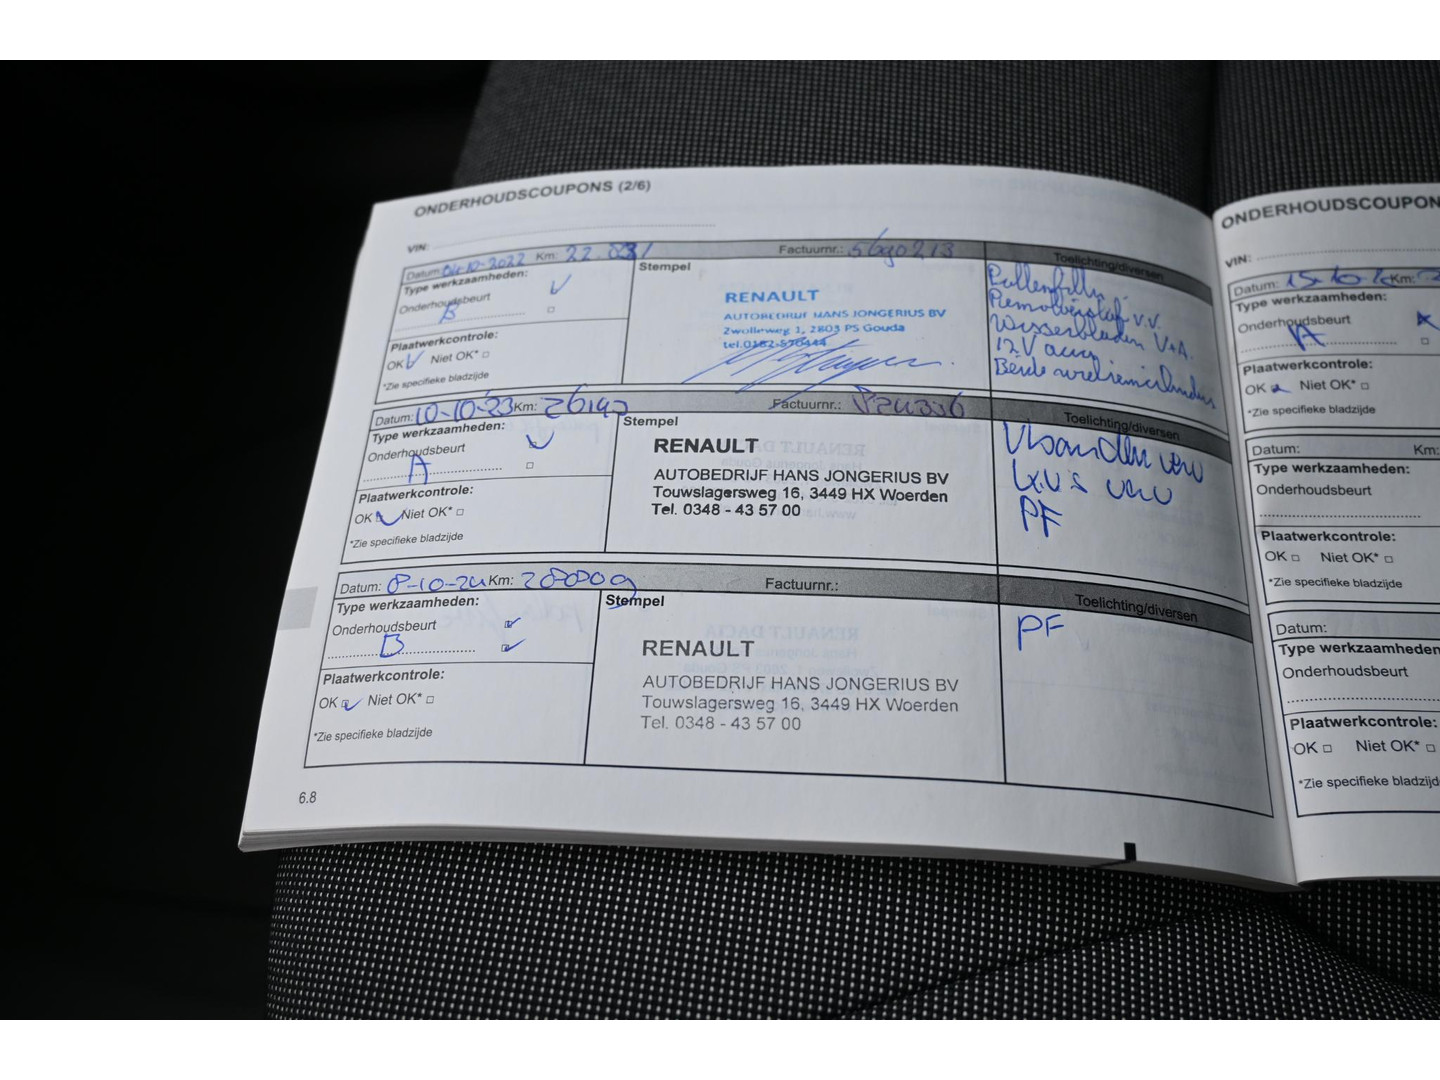 ONDERHOUDSCOUPONS (2/6)
VIN:
Datum: 04-10-2022 Km: 22.031 Factuurnr.: Toelichting/diversen
Type werkzaamheden:
Onderhoudsbeurt
B
Plaatwerkcontrole:
OK Niet OK*
*Zie specifieke bladzijde
Stempel
RENAULT
AUTOBEDRIJF HANS JONGERIUS BV
Zwolleweg 1, 2803 PS Gouda
tel.0182-570444
Pollenfilter.
Remvloeistof v.v.
Wisserbladen V+A.
12V accu
Beide
Datum: 10-10-23 Km: Factuurnr.: Toelichting/diversen
Type werkzaamheden:
Onderhoudsbeurt
A
Plaatwerkcontrole:
OK Niet OK*
*Zie specifieke bladzijde
Stempel
RENAULT
AUTOBEDRIJF HANS JONGERIUS BV
Touwslagersweg 16, 3449 HX Woerden
Tel. 0348 - 43 57 00
PF
Datum: 8-10-24 Km: Factuurnr.: Toelichting/diversen
Type werkzaamheden:
Onderhoudsbeurt
B
Plaatwerkcontrole:
OK Niet OK*
*Zie specifieke bladzijde
Stempel
RENAULT
AUTOBEDRIJF HANS JONGERIUS BV
Touwslagersweg 16, 3449 HX Woerden
Tel. 0348 - 43 57 00
PF
6.8
ONDERHOUDSCOUPON
VIN:
Datum: Km:
Type werkzaamheden:
Onderhoudsbeurt
A
Plaatwerkcontrole:
OK Niet OK*
*Zie specifieke bladzijde
Datum: Km:
Type werkzaamheden:
Onderhoudsbeurt
Plaatwerkcontrole:
OK Niet OK*
*Zie specifieke bladzijde
Datum:
Type werkzaamheden
Onderhoudsbeurt
Plaatwerkcontrole:
OK Niet OK*
*Zie specifieke bladzijd